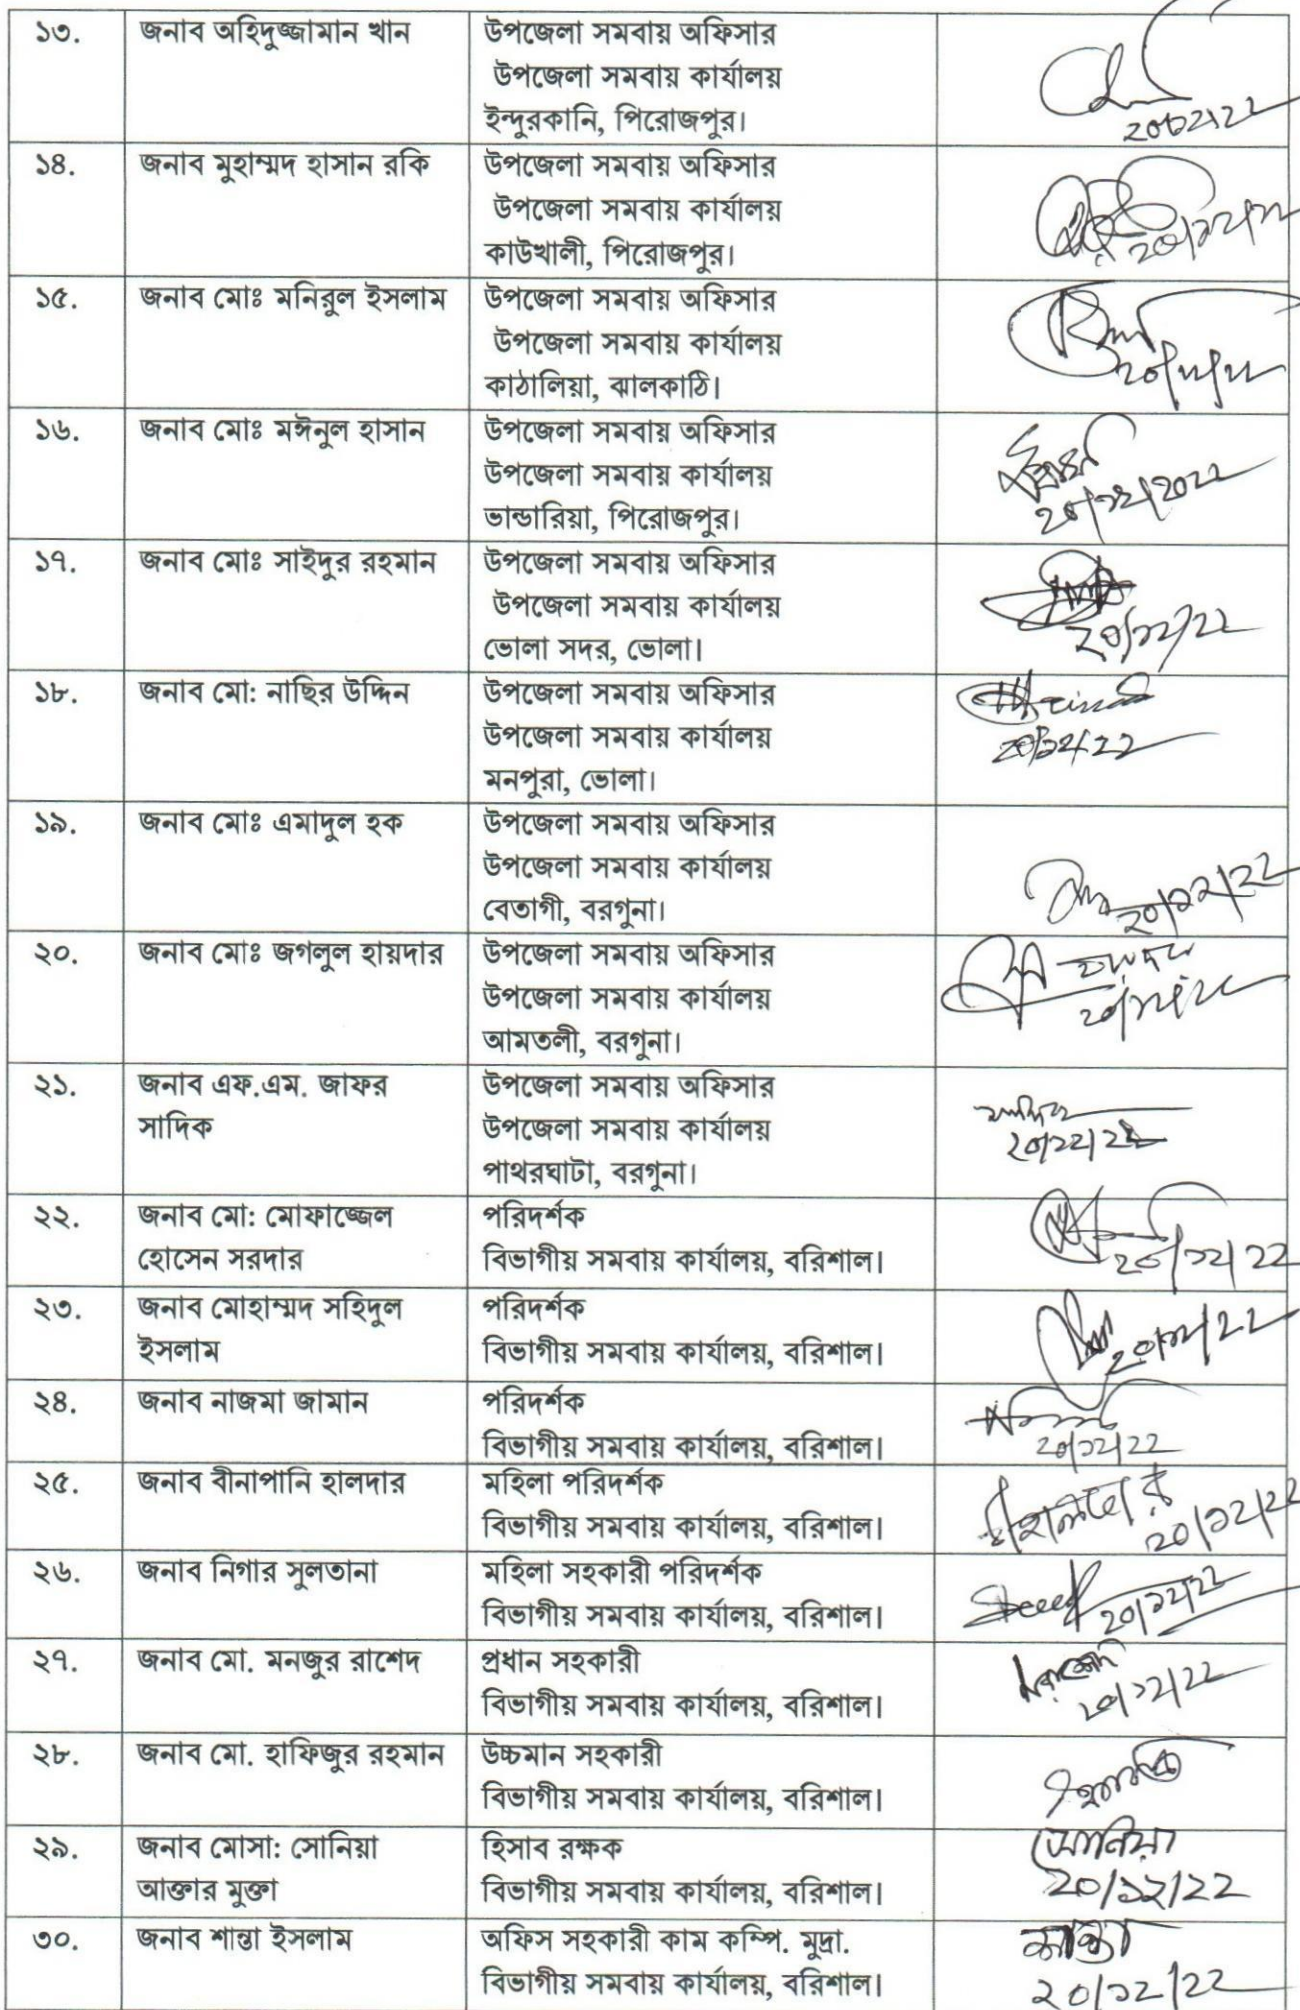 ১৩.
জনাব অহিদুজ্জামান খান
উপজেলা সমবায় অফিসার
উপজেলা সমবায় কার্যালয়
ইন্দুরকানি, পিরোজপুর।
১৪.
জনাব মুহাম্মদ হাসান রকি
উপজেলা সমবায় অফিসার
উপজেলা সমবায় কার্যালয়
কাউখালী, পিরোজপুর।
১৫.
জনাব মোঃ মনিরুল ইসলাম
উপজেলা সমবায় অফিসার
উপজেলা সমবায় কার্যালয়
কাঠালিয়া, ঝালকাঠি।
১৬.
জনাব মোঃ মঈনুল হাসান
উপজেলা সমবায় অফিসার
উপজেলা সমবায় কার্যালয়
ভান্ডারিয়া, পিরোজপুর।
২০/১২/২০২২
১৭.
জনাব মোঃ সাইদুর রহমান
উপজেলা সমবায় অফিসার
উপজেলা সমবায় কার্যালয়
ভোলা সদর, ভোলা।
২০/১২/২২
১৮.
জনাব মো: নাছির উদ্দিন
উপজেলা সমবায় অফিসার
উপজেলা সমবায় কার্যালয়
মনপুরা, ভোলা।
২০/১২/২২
১৯.
জনাব মোঃ এমাদুল হক
উপজেলা সমবায় অফিসার
উপজেলা সমবায় কার্যালয়
বেতাগী, বরগুনা।
২০/১২/২২
২০.
জনাব মোঃ জগলুল হায়দার
উপজেলা সমবায় অফিসার
উপজেলা সমবায় কার্যালয়
আমতলী, বরগুনা।
২১.
জনাব এফ.এম. জাফর
সাদিক
উপজেলা সমবায় অফিসার
উপজেলা সমবায় কার্যালয়
পাথরঘাটা, বরগুনা।
২০/১২/২২
২২.
জনাব মো: মোফাজ্জেল
হোসেন সরদার
পরিদর্শক
বিভাগীয় সমবায় কার্যালয়, বরিশাল।
২০/১২/২২
২৩.
জনাব মোহাম্মদ সহিদুল
ইসলাম
পরিদর্শক
বিভাগীয় সমবায় কার্যালয়, বরিশাল।
২০/১২/২২
২৪.
জনাব নাজমা জামান
পরিদর্শক
বিভাগীয় সমবায় কার্যালয়, বরিশাল।
২০/১২/২২
২৫.
জনাব বীনাপানি হালদার
মহিলা পরিদর্শক
বিভাগীয় সমবায় কার্যালয়, বরিশাল।
২০/১২/২২
২৬.
জনাব নিগার সুলতানা
মহিলা সহকারী পরিদর্শক
বিভাগীয় সমবায় কার্যালয়, বরিশাল।
২০/১২/২২
২৭.
জনাব মো. মনজুর রাশেদ
প্রধান সহকারী
বিভাগীয় সমবায় কার্যালয়, বরিশাল।
২০/১২/২২
২৮.
জনাব মো. হাফিজুর রহমান
উচ্চমান সহকারী
বিভাগীয় সমবায় কার্যালয়, বরিশাল।
২৯.
জনাব মোসা: সোনিয়া
আক্তার মুক্তা
হিসাব রক্ষক
বিভাগীয় সমবায় কার্যালয়, বরিশাল।
সোনিয়া
২০/১২/২২
৩০.
জনাব শান্তা ইসলাম
অফিস সহকারী কাম কম্পি. মুদ্রা.
বিভাগীয় সমবায় কার্যালয়, বরিশাল।
শান্তা
২০/১২/২২